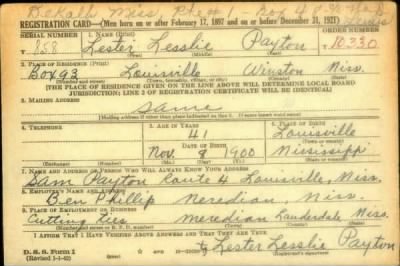 Dekalb Miss. Rte # 1 Box 4
REGISTRATION CARD—(Men born on or after February 17, 1897 and on or before December 31, 1921)
SERIAL NUMBER 1. NAME (Print) ORDER NUMBER
858 Lester Lesslie Payton 10330
(First) (Middle) (Last)
2. PLACE OF RESIDENCE (Print)
Box 93 Louisville Winston Miss.
(Number and street) (Town, township, village, or city) (County) (State)
[THE PLACE OF RESIDENCE GIVEN ON THE LINE ABOVE WILL DETERMINE LOCAL BOARD
JURISDICTION; LINE 2 OF REGISTRATION CERTIFICATE WILL BE IDENTICAL]
3. MAILING ADDRESS
Same
[Mailing address if other than place indicated on line 2. If same insert word same]
4. TELEPHONE 5. AGE IN YEARS 6. PLACE OF BIRTH
41 Louisville
DATE OF BIRTH (Town or county)
Nov. 9 1900 Mississippi
(Exchange) (Number) (Mo.) (Day) (Yr.) (State or country)
7. NAME AND ADDRESS OF PERSON WHO WILL ALWAYS KNOW YOUR ADDRESS
Sam Payton Route 4 Louisville, Miss.
8. EMPLOYER'S NAME AND ADDRESS
Ben Phillip Meredian, Miss.
9. PLACE OF EMPLOYMENT OR BUSINESS
Cutting ties Meredian Lauderdale Miss.
(Number and street or R. F. D. number) (Town) (County) (State)
I AFFIRM THAT I HAVE VERIFIED ABOVE ANSWERS AND THAT THEY ARE TRUE.
D. S. S. Form 1 Lester Lesslie Payton
(Revised 1-1-42) (Registrant's signature)